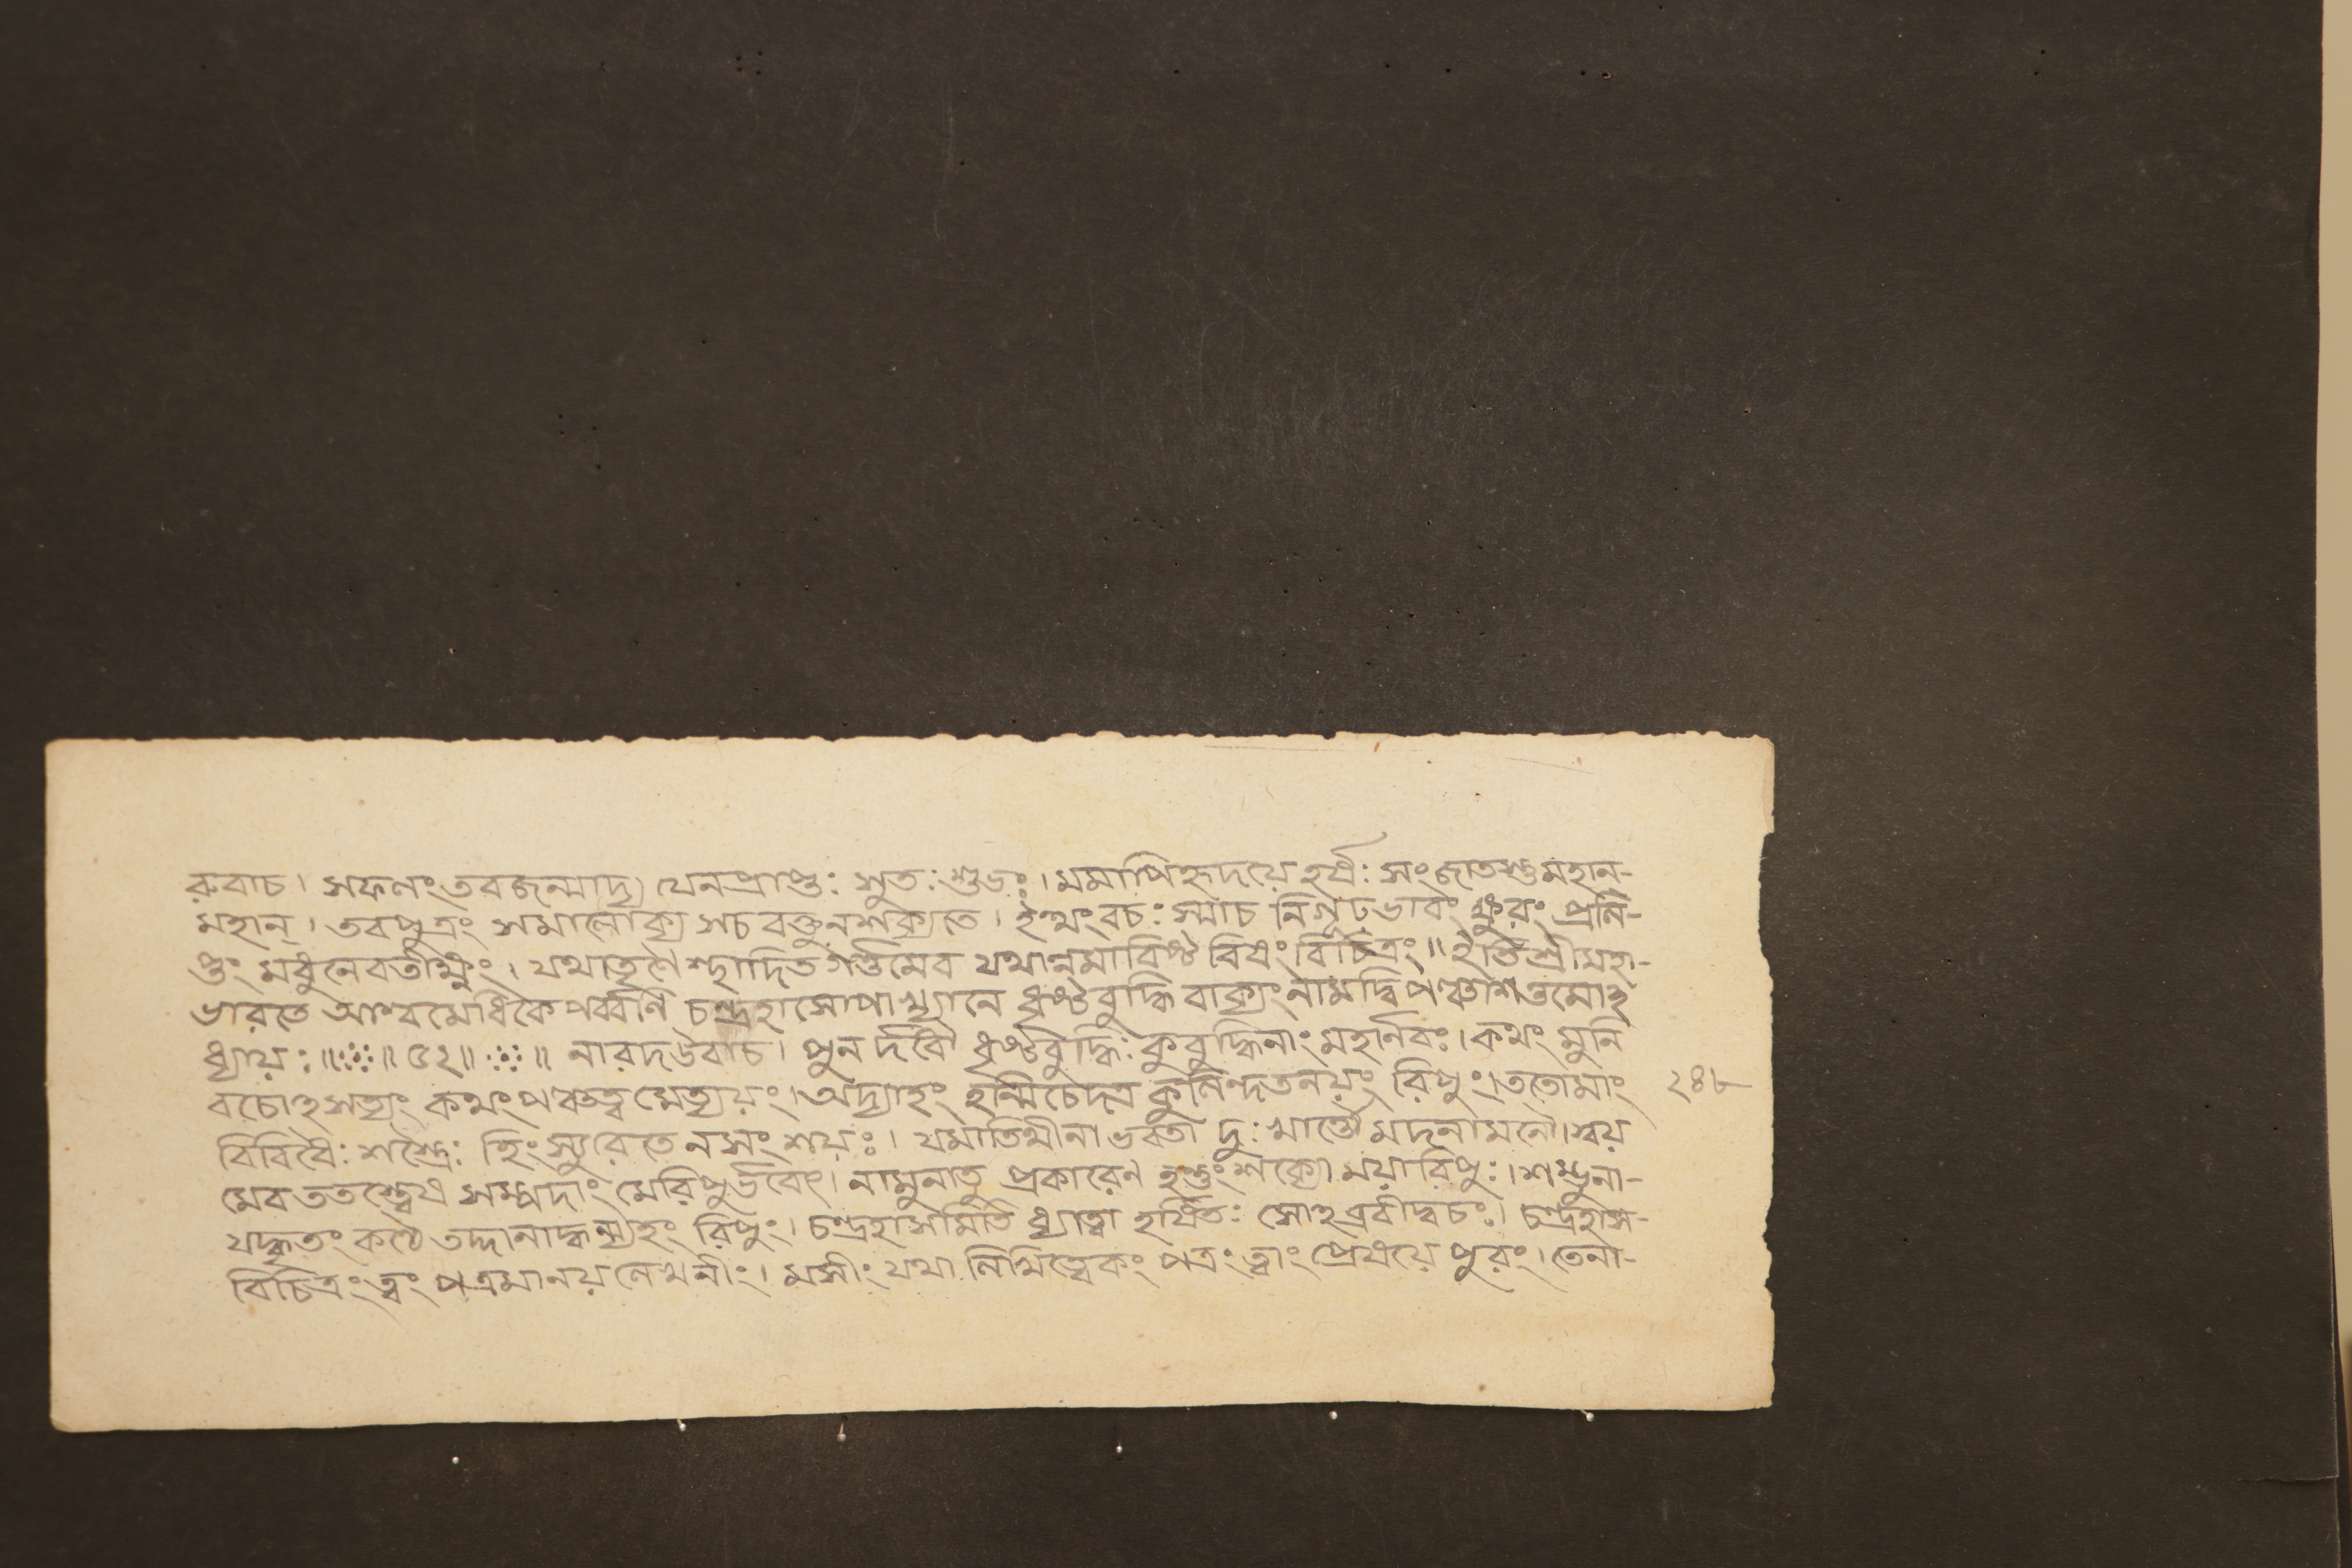 রুবাচ। সফলং তবজন্মাদ্য যেনপ্রাপ্তঃ সুতঃ শুভঃ। মমাপিহৃদয়ে হর্ষঃ সংজাতস্তুমহান-
মহান্। তবপুত্রং সমালোক্য সচ বক্তুনশক্যতে। ইত্থং বচঃ স্মাচ নিগূঢভাবং ক্ষুরং প্রলি-
প্তং মধুনেবতীক্ষ্ণং। যথাতৃণৈ শ্ছাদিত গর্ত্তমেব যথান্নমাবিষ্ট বিষং বিচিত্রং॥ ইতি শ্রীমহা-
ভারতে আশ্বমেধিকেপর্ব্বণি চন্দ্রহাসোপাখ্যানে ধৃষ্টবুদ্ধি বাক্যংনামদ্বিপঞ্চাশত্তমোঽ
ধ্যায়ঃ॥ ৫২॥ ॥ নারদউবাচ। পুন র্দধ্যৌ ধৃষ্টবুদ্ধিঃ কুবুদ্ধিনাং মহার্ণবঃ। কথং মুনি
বচোঽসত্যং কথংপঞ্চত্ব মেত্যয়ং। অদ্যাহং হন্মিচেদত্র কুলিন্দতনয়ং রিপুং। ততোমাং ২৪৮
বিবিধৈঃ শস্ত্রৈঃ হিংস্যুরেতে নসংশয়ঃ। দুঃখার্ত্তৌ মদনামলৌ। স্বয়
মেব ততশ্চৈষ সম্পদাং মেরিপুর্ভবেৎ। নামুনাতু প্রকারেণ হন্তুংশক্যো ময়ারিপুঃ। শম্ভুনা-
যদ্ধৃতং কণ্ঠে তদ্দানাদ্ধন্ম্যহং রিপুং। চন্দ্রহাসমিতি ধ্যাত্বা হর্ষিতঃ সোঽব্রবীদ্বচঃ। চন্দ্রহাস-
বিচিত্রং ত্বং পত্রমানয় লেখনীং। মসীং যথা পত্রং ত্বাং প্রেষয়ে পুরং। তেনা-